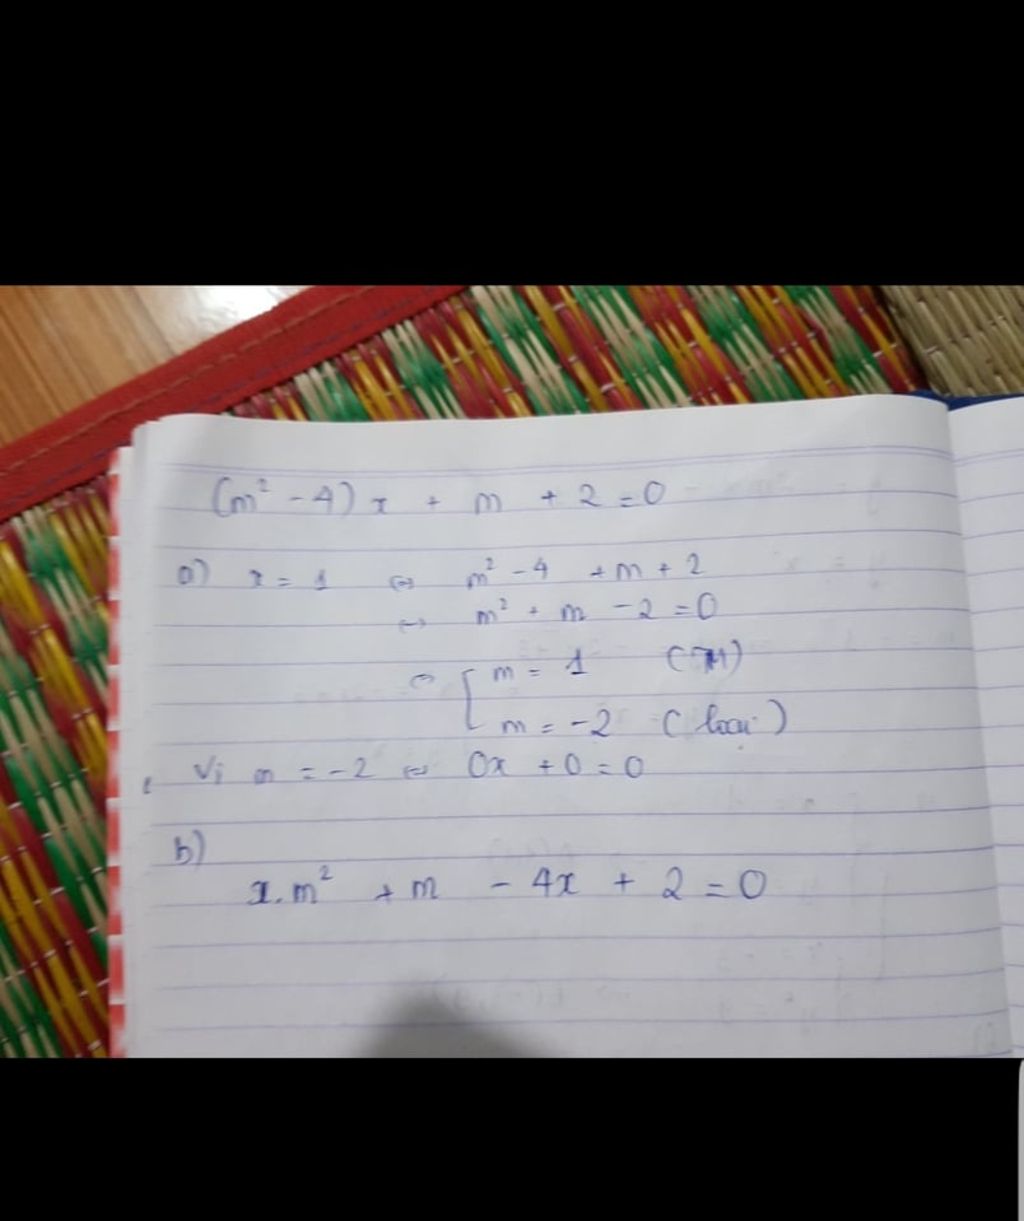 (m² - 4) x + m + 2 = 0
a) x = 1 ⇔ m² - 4 + m + 2
⇔ m² + m - 2 = 0
⇔ [ m = 1 (TM)
m = -2 (loại)
Vì m = -2 ⇔ 0x + 0 = 0
b)
x.m² + m - 4x + 2 = 0